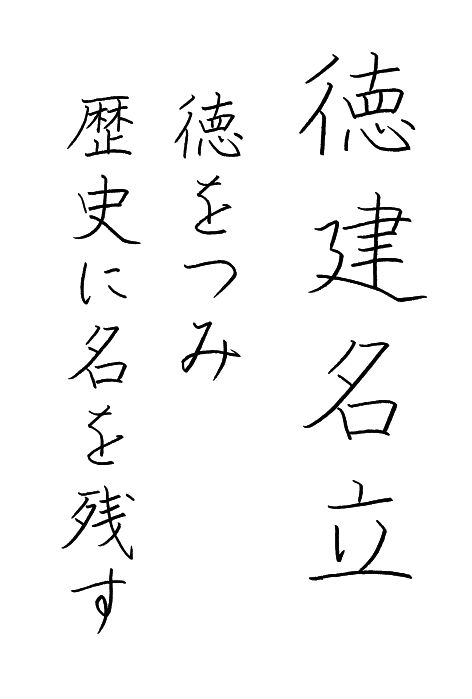 徳建名立
徳をつみ
歴史に名を残す